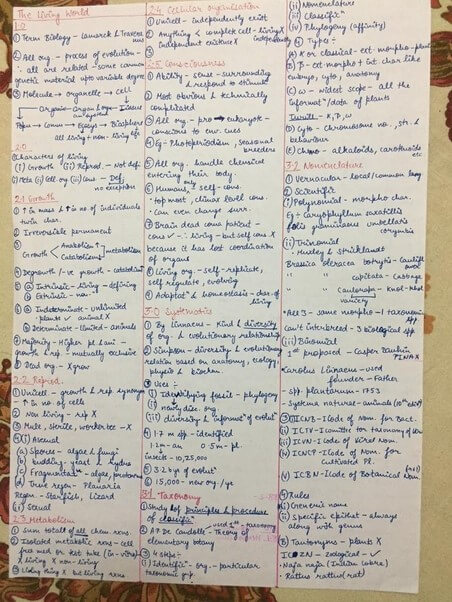 The Living World
1.0
① Term Biology - Lamarck & Trevira
② All org - process of evolution -
∴ all are related - some common
genetic material upto variable degree
③ Molecule → organelle → cell
Popu ← Comm ← Ecosys → Biosphere
all living + non-living
2.0
Characters of living
(i) Growth (ii) Reprod. - Not def.
(i) Meta (ii) Cell org (iii) Cons. - Def.
no exception
2.1 Growth
① ↑ in mass & ↑ in no. of individuals
twin char.
② Irreversible permanent
③ Growth Anabolism ↑
Catabolism ↓ metabolism
④ Degrowth / -ve growth - catabolism
⑤ a) Intrinsic - living - defining
b) Extrinsic - non
⑥ a) Indeterminate - unlimited
plants ✓ animal X
b) Determinate - limited - animals
⑦ Majority - Higher pl & ani -
growth & rep - mutually exclusive
⑧ Dead org - X grow
2.2 Reprod.
① Unicell - growth & rep synonym
∴ ↑ in no. of cells
② Non living - rep X
③ Mule, sterile, worker bee - X
④ (i) Asexual
(a) spores - algae & fungi
(b) budding - yeast & hydra
(c) Fragmentation - algae, protonema
(d) True regen - Planaria
Regen - Starfish, lizard
(ii) Sexual
2.3 Metabolism
① Sum total of all chem. rxns
② Isolated metabolic rxns - cell
free med or test tube (in-vitro)
X living X non-living
③ Living thing X but living rxns
2.4 Cellular organisation
① Unicell - independently exist
② Anything < complete cell - living X
independent existence X independently
2.5 Consciousness
① Ability - sense - surrounding
& respond to stimuli
② Most obvious & technically
complicated
③ All org - pro → eukaryote -
conscious to env. cues
④ Eg - Photoperiodism, seasonal
breeders
⑤ All org. handle chemical
entering their body.
⑥ Humans only self-cons.
topmost,
can even change surr.
⑦ Brain dead coma patient -
cons ✓ ∴ living - but self cons X
because it has lost coordination
of organs
⑧ Living org - self-replicate,
self regulate, evolving
⑨ Adaptatn & homeostasis - char. of
living
3.0 Systematics
① By Linnaeus - Kind & diversity
of org. & evolutionary relationship
② Simpson - diversity & evolutionary
relation based on anatomy, ecology,
physio & biochem
③ Uses :
(i) Identifying fossil - phylogeny
(ii) newly disc. org.
(iii) diversity & informatn of evolutn
④ 1.7 m spp - identified
1.2 m - an 0.5 m - pl.
insects - 10,25,000
⑤ 3.2 b yr of evolutn
⑥ 15,000 - new org / yr
3.1 Taxonomy
① Study of principles & procedure
of classificatn
② AP De Candolle - Theory of
elementary botany
③ 4 steps :
(i) Identificatn - org. - particular
taxonomic grp.
(ii) Nomenclature
(iii) Classificatn
(iv) Phylogeny (affinity)
④ Types :
A) α or classical - ext. morpho - plant
B) β - ext. morpho + int char like
embryo, cyto, anatomy
C) ω - widest scope - all the
informatn / data of plants
D) Cyto - Chromosome no., str. &
behaviour
E) Chemo - alkaloids, carotenoids
etc.
3.2 Nomenclature
① Vernacular - local / common lang
② Scientific
(i) Polynomial - morpho char.
Eg : Caryophyllum saxatilis
folis gramineus umbellatis
corymbis
(ii) Trinomial
- Huxley & Strickland
Brassica oleracea botrytis - Cauliflower
" " capitata - Cabbage
" " Caulorapa - Knol-Khol
variety
Can't interbreed - 3 biological spp
(iii) Binomial
1st proposed - Casper Bauhin
PINAX
Carolus Linnaeus - used
founder - Father
spp. plantarum - 1753
Systema natural - animals
③ (i) ICNB - ICode of Nom. for Bact.
(ii) ICTV - Icomittee for taxonomy of
(iii) IVN - ICode of Viral Nom.
(iv) ICNCP - ICode of Nom. for
cultivated Pl.
(v) ICBN - ICode of Botanical Nom
④ Rules
(i) Generic name
(ii) Specific epithet - always
along with genus
⑤ Tautonyms - plants X
ICZN - zoological - ✓
Naja naja (Indian cobra)
- Rattus rattus (rat)